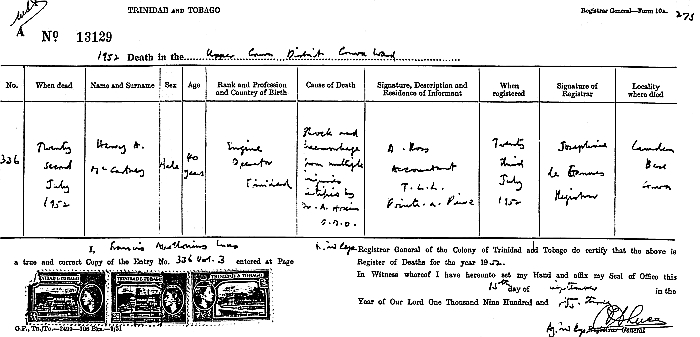 TRINIDAD AND TOBAGO
Registrar General—Form 10A.
275
A No 13129
1952 Death in the Upper Couva District Couva Ward
No. When dead Name and Surname Sex Age Rank and Profession and Country of Birth Cause of Death Signature, Description and Residence of Informant When registered Signature of Registrar Locality where died
336 Twenty second July 1952 Henry A. McCartney Male 40 years Engine Operator Trinidad Shock and haemorrhage from multiple injuries certified by A. D.M.O. A. Ross Accountant T.L.L. Pointe-a-Pierre Twenty third July 1952 Josephine Registrar Camden Base Couva
I, Francis Registrar General of the Colony of Trinidad and Tobago do certify that the above is
a true and correct Copy of the Entry No. 336 Vol. 3 entered at Page Register of Deaths for the year 1952.
In Witness whereof I have hereunto set my Hand and affix my Seal of Office this
day of in the
Year of Our Lord One Thousand Nine Hundred and fifty three
TRINIDAD & TOBAGO
TRINIDAD & TOBAGO
TRINIDAD & TOBAGO
Registrar General